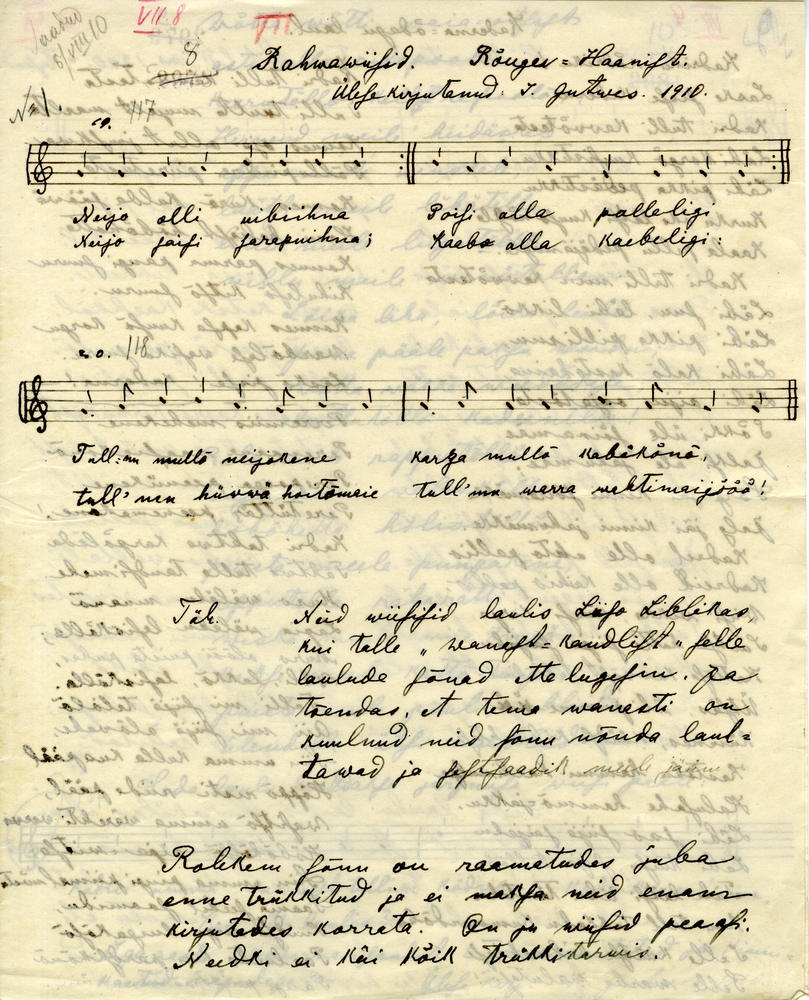 VII 8
VII.
Saadud
8/VIII 10
8
Rahwawiisid. Rõuges=Haanist.
Ülesse kirjutanud: J. Gutwes. 1910.
No 1. 117
19.
Neijo olli uibiihna Poisi alla palleligi
Neijo saisi sarapuihna; Kaabo alla kaebeligi:
20. 118
Tull:nu mullõ neijokene karga mullõ kabõkõnõ,
tull'nan hüwwä hoitõmaie tull'ma warra wahtimaijõõõ!
Täh. Neid wiisisid laulis Liiso Liblikas,
kui talle „wanast=kandlist„ selle
laulude sõnad ette lugesin. Ja
tõendas, et tema wanasti on
kuulnud neid sõnu nõnda laul=
tawad ja sestsaadik meele jäänu
Rohkem sõnu on raamatudes juba
enne trükkitud ja ei maksa neid enam
kirjutades korrata. On ju wiisid peaasi.
Needki ei käi kõik trükkitarwis.